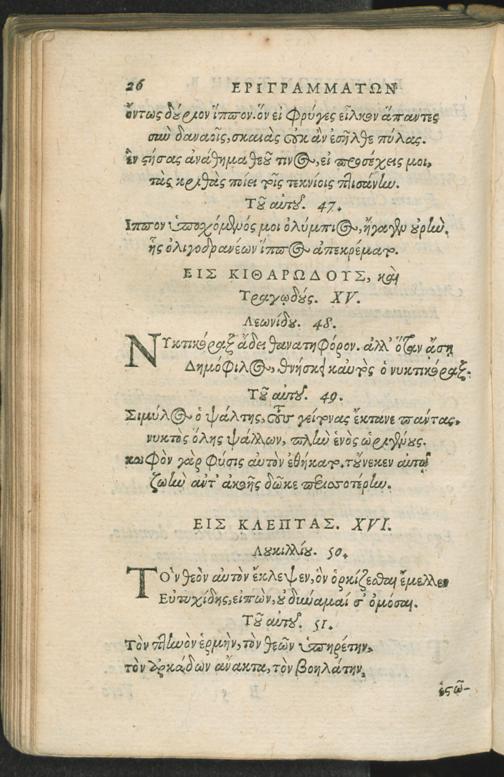 26 ΕΠΙΓΡΑΜΜΑΤΩΝ
ὄντως δούριον ἵππον. ὃν εἰ Φρύγες εἷλκον ἅπαντες
σὺν δαναοῖς, σκαιὰς οὐκ ἂν ἐσῆλθε πύλας.
ὃν στήσας ἀνάθημα θεοῦ τινος, εἰ προσέχεις μοι,
τὰς κριθὰς ποίει τοῖς τεκνίοις πτισάνην.
Τοῦ αὐτοῦ. 47.
Ἵππον ὑποσχόμενός μοι ὀλύμπιος, ἤγαγεν οὐρὴν,
ἧς ὀλιγοδρανέων ἵππος ἀπεκρέματο.
ΕΙΣ ΚΙΘΑΡΩΔΟΥΣ, καὶ
Τραγῳδούς. XV.
Λεωνίδου. 48.
ΝΥκτικόραξ ᾄδει θανατηφόρον. ἀλλ' ὅταν ᾄσῃ
Δημόφιλος, θνήσκει καὐτὸς ὁ νυκτικόραξ.
Τοῦ αὐτοῦ. 49.
Σιμύλος ὁ ψάλτης, τοὺς γείτονας ἔκτανε πάντας,
νυκτὸς ὅλης ψάλλων, πλὴν ἑνὸς ὠριγένους.
κωφὸν γὰρ φύσις αὐτὸν ἐθήκατο. τοὔνεκεν αὐτῷ
ζωὴν ἀντ' ἀκοῆς δῶκε περισσοτέρην.
ΕΙΣ ΚΛΕΠΤΑΣ. XVI.
Λουκιλλίου. 50.
ΤΟ'ν θεὸν αὐτὸν ἔκλεψεν, ὃν ὁρκίζεσθαι ἔμελλεν
Εὐτυχίδης, εἰπὼν, οὐ δύναμαί σ' ὀμόσαι.
Τοῦ αὐτοῦ. 51.
Τὸν πτηνὸν ἑρμῆν, τὸν θεῶν ὑπηρέτην,
τὸν ἀρκάδων ἄνακτα, τὸν βοηλάτην,
ἑστῶ-